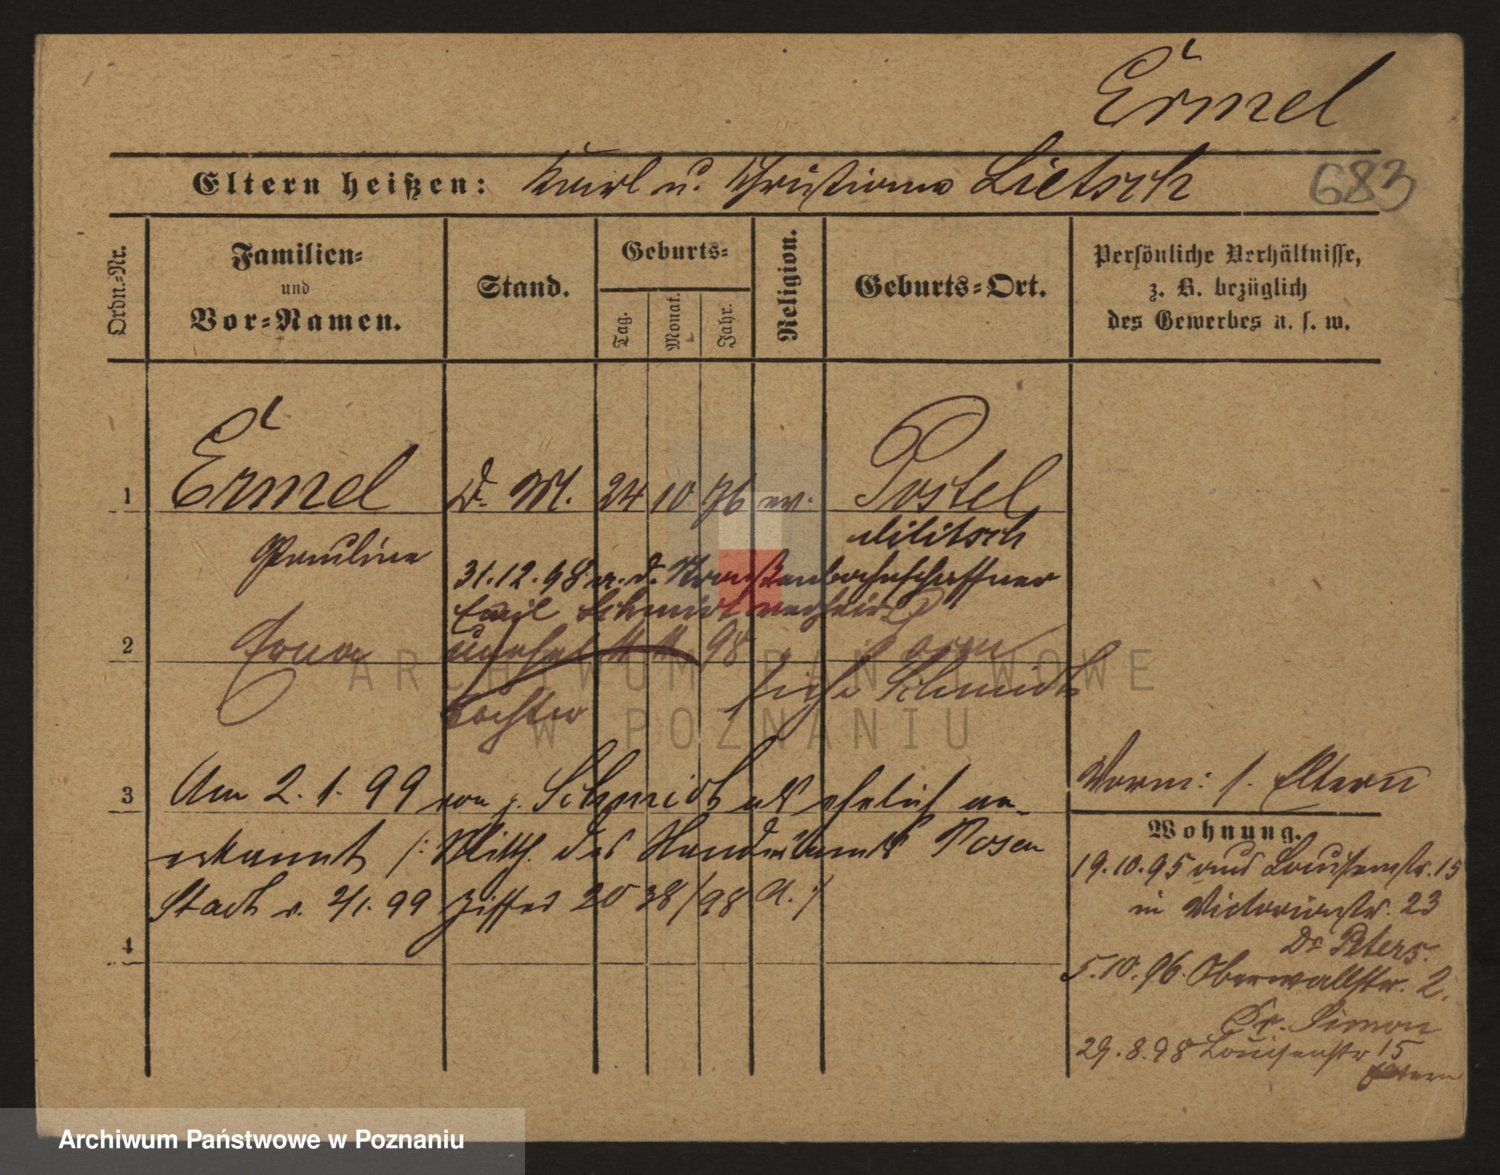 Ermel
Eltern heißen: Karl u. Christiane Lietsch
683
Ordn.-Nr.
Familien-
und
Vor-Namen.
Stand.
Geburts-
Tag.
Monat.
Jahr.
Religion.
Geburts-Ort.
Persönliche Verhältnisse,
z. B. bezüglich
des Gewerbes u. s. w.
1 Ermel D. M. 24 10 76 ev. Postel
Pauline Militsch
31.12.98 m. d. Straßenbahnschaffner
Emil Schmidt verheir.
2 Erna unehel 98
Tochter siehe Schmidt
3 Am 2.1.99 von p. Schmidt als ehelich an-
erkannt /: Mitth. des Standesamts Posen
Stadt v. 2/1.99 Ziffer 2038/98 A. :/
4
Vorm: s. Eltern
Wohnung.
19.10.95 aus Louisenstr. 15
in Victoriastr. 23
Dr Peters.
5.10.96. Oberwallstr. 2.
Dr. Simon
29.8.98 Louisenstr 15
Eltern
ARCHIWUM PAŃSTWOWE
W POZNANIU
Archiwum Państwowe w Poznaniu